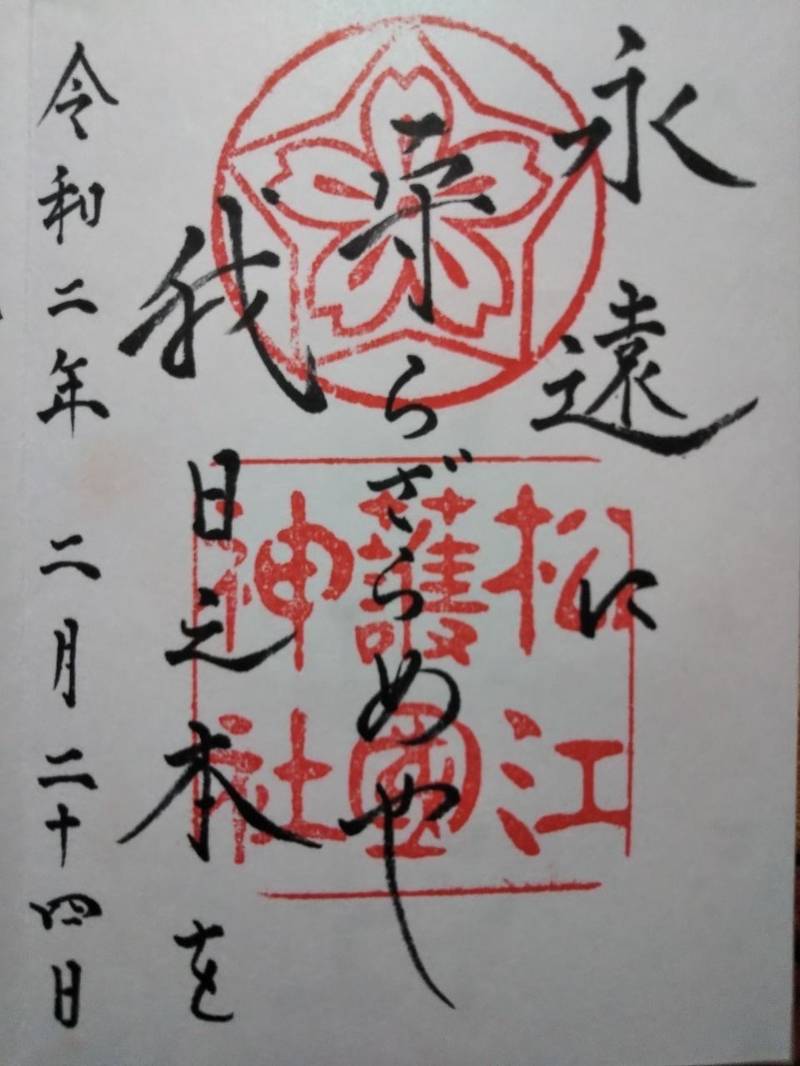 永遠に
守らざらめや
我日之本を
令和二年 二月二十四日
松江
護國
神社